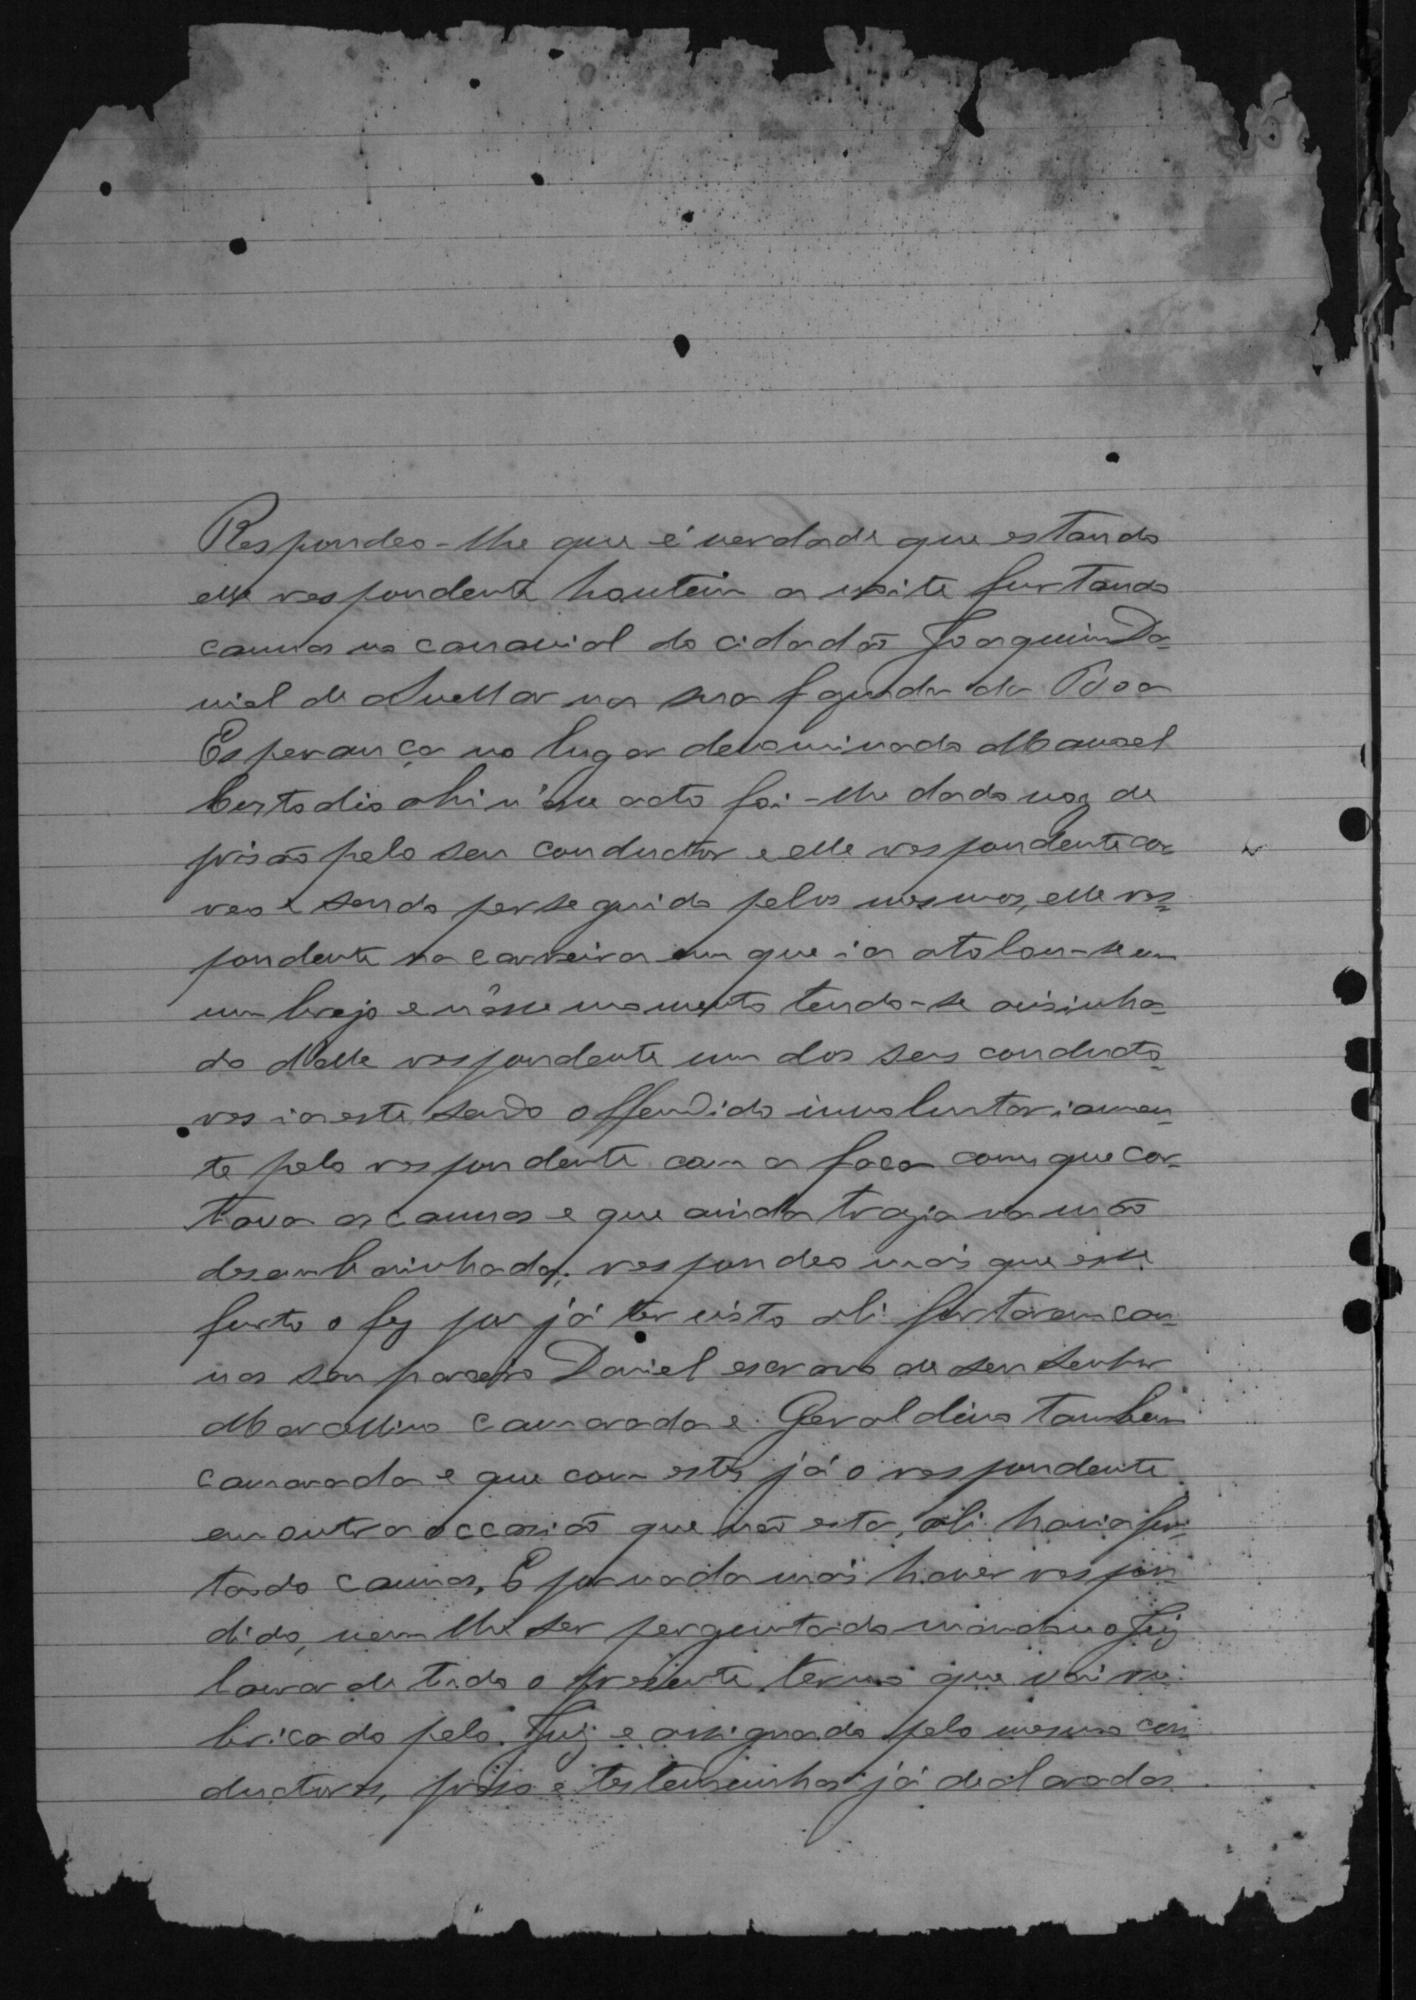 Respondeo-lhe que é verdade que estando
elle respondente hontem a noite furtando
cannas no canavial do cidadão Joaquim Da-
niel de Avellar na sua fazenda da Boa
Esperança no lugar denominado Manoel
Custodio ahi n'esse acto foi-lhe dado voz de
prisão pelo seu conductor e elle respondente cor-
reo e sendo perseguido pelos mesmos, elle res-
pondente na carreira em que ia atolou-se em
um brejo e nésse momento tendo-se avisinha-
do d'elle respondente um dos seus conducto-
res ia este sendo offendido involuntariamen-
te pelo respondente com a faca com que cor-
tava as cannas e que ainda trazia na mão
desembainhada; respondeo mais que esse
furto o fez por já ter visto ali furtarem can-
nas seu parceiro Daniel escravo de seu senhor
Marcellino camarada e Geraldino tambem
camarada e que com estes já o respondente
em outra occasião que não esta, ali havia fur-
tado cannas. E por nada mais haver respon-
dido, nem lhe ser perguntado mandou o Juiz
lavrar de tudo o presente termo que vai ru-
bricado pelo Juiz e assignado pelo mesmo con-
ductores, preso e testemunhas já declaradas